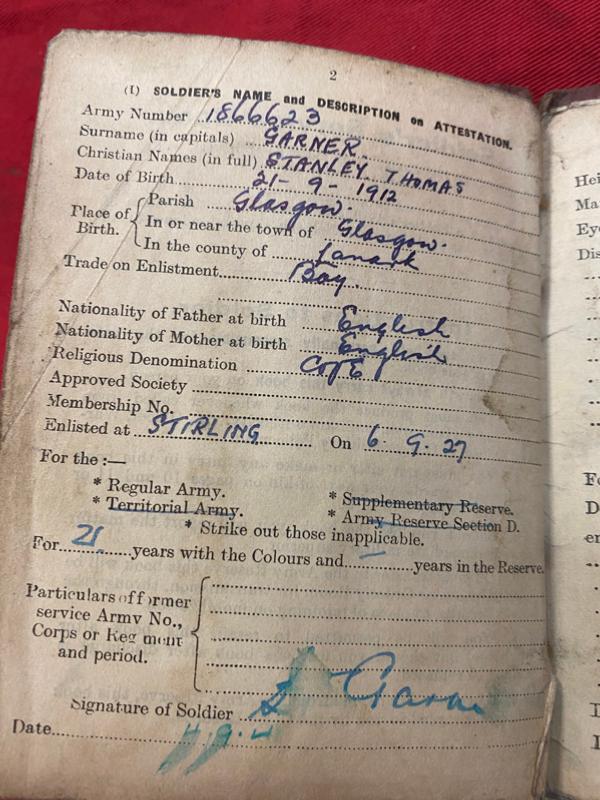 2
(1) SOLDIER'S NAME and DESCRIPTION on ATTESTATION.
Army Number 1866623
Surname (in capitals) GARNER
Christian Names (in full) STANLEY. THOMAS
Date of Birth 21 - 9 - 1912
Place of Birth. { Parish Glasgow.
In or near the town of Glasgow.
In the county of Lanark
Trade on Enlistment Boy.
Nationality of Father at birth English
Nationality of Mother at birth English
Religious Denomination C of E
Approved Society
Membership No.
Enlisted at STIRLING On 6. 9. 27
For the :—
* Regular Army. * Supplementary Reserve.
* Territorial Army. * Army Reserve Section D.
* Strike out those inapplicable.
For years with the Colours and — years in the Reserve.
Particulars of former
service Army No.,
Corps or Regiment
and period.
Signature of Soldier S Garner
Date
Hei
Ma
Eye
Dis